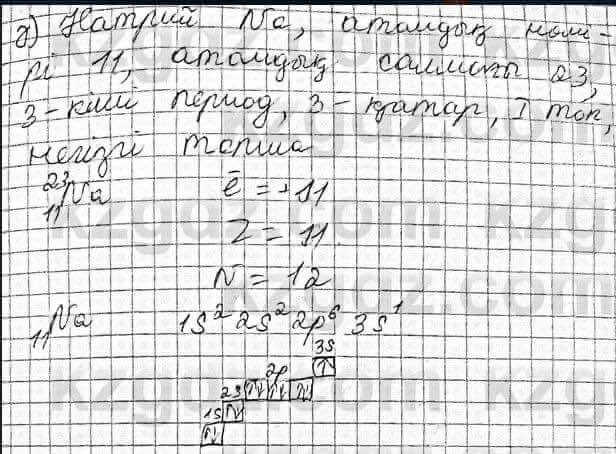 д) Натрий Na, атомдық номе-
рі 11, атомдық салмағы 23,
3-кіші период, 3-қатар, I топ,
негізгі топша
²³₁₁Na ē = +11
Z = 11
N = 12
₁₁Na 1s² 2s² 2p⁶ 3s¹
3s
↑
2p
2s ↑↓ ↑↓ ↑↓
1s ↑↓
↑↓
kzgaz.com kzgaz.com